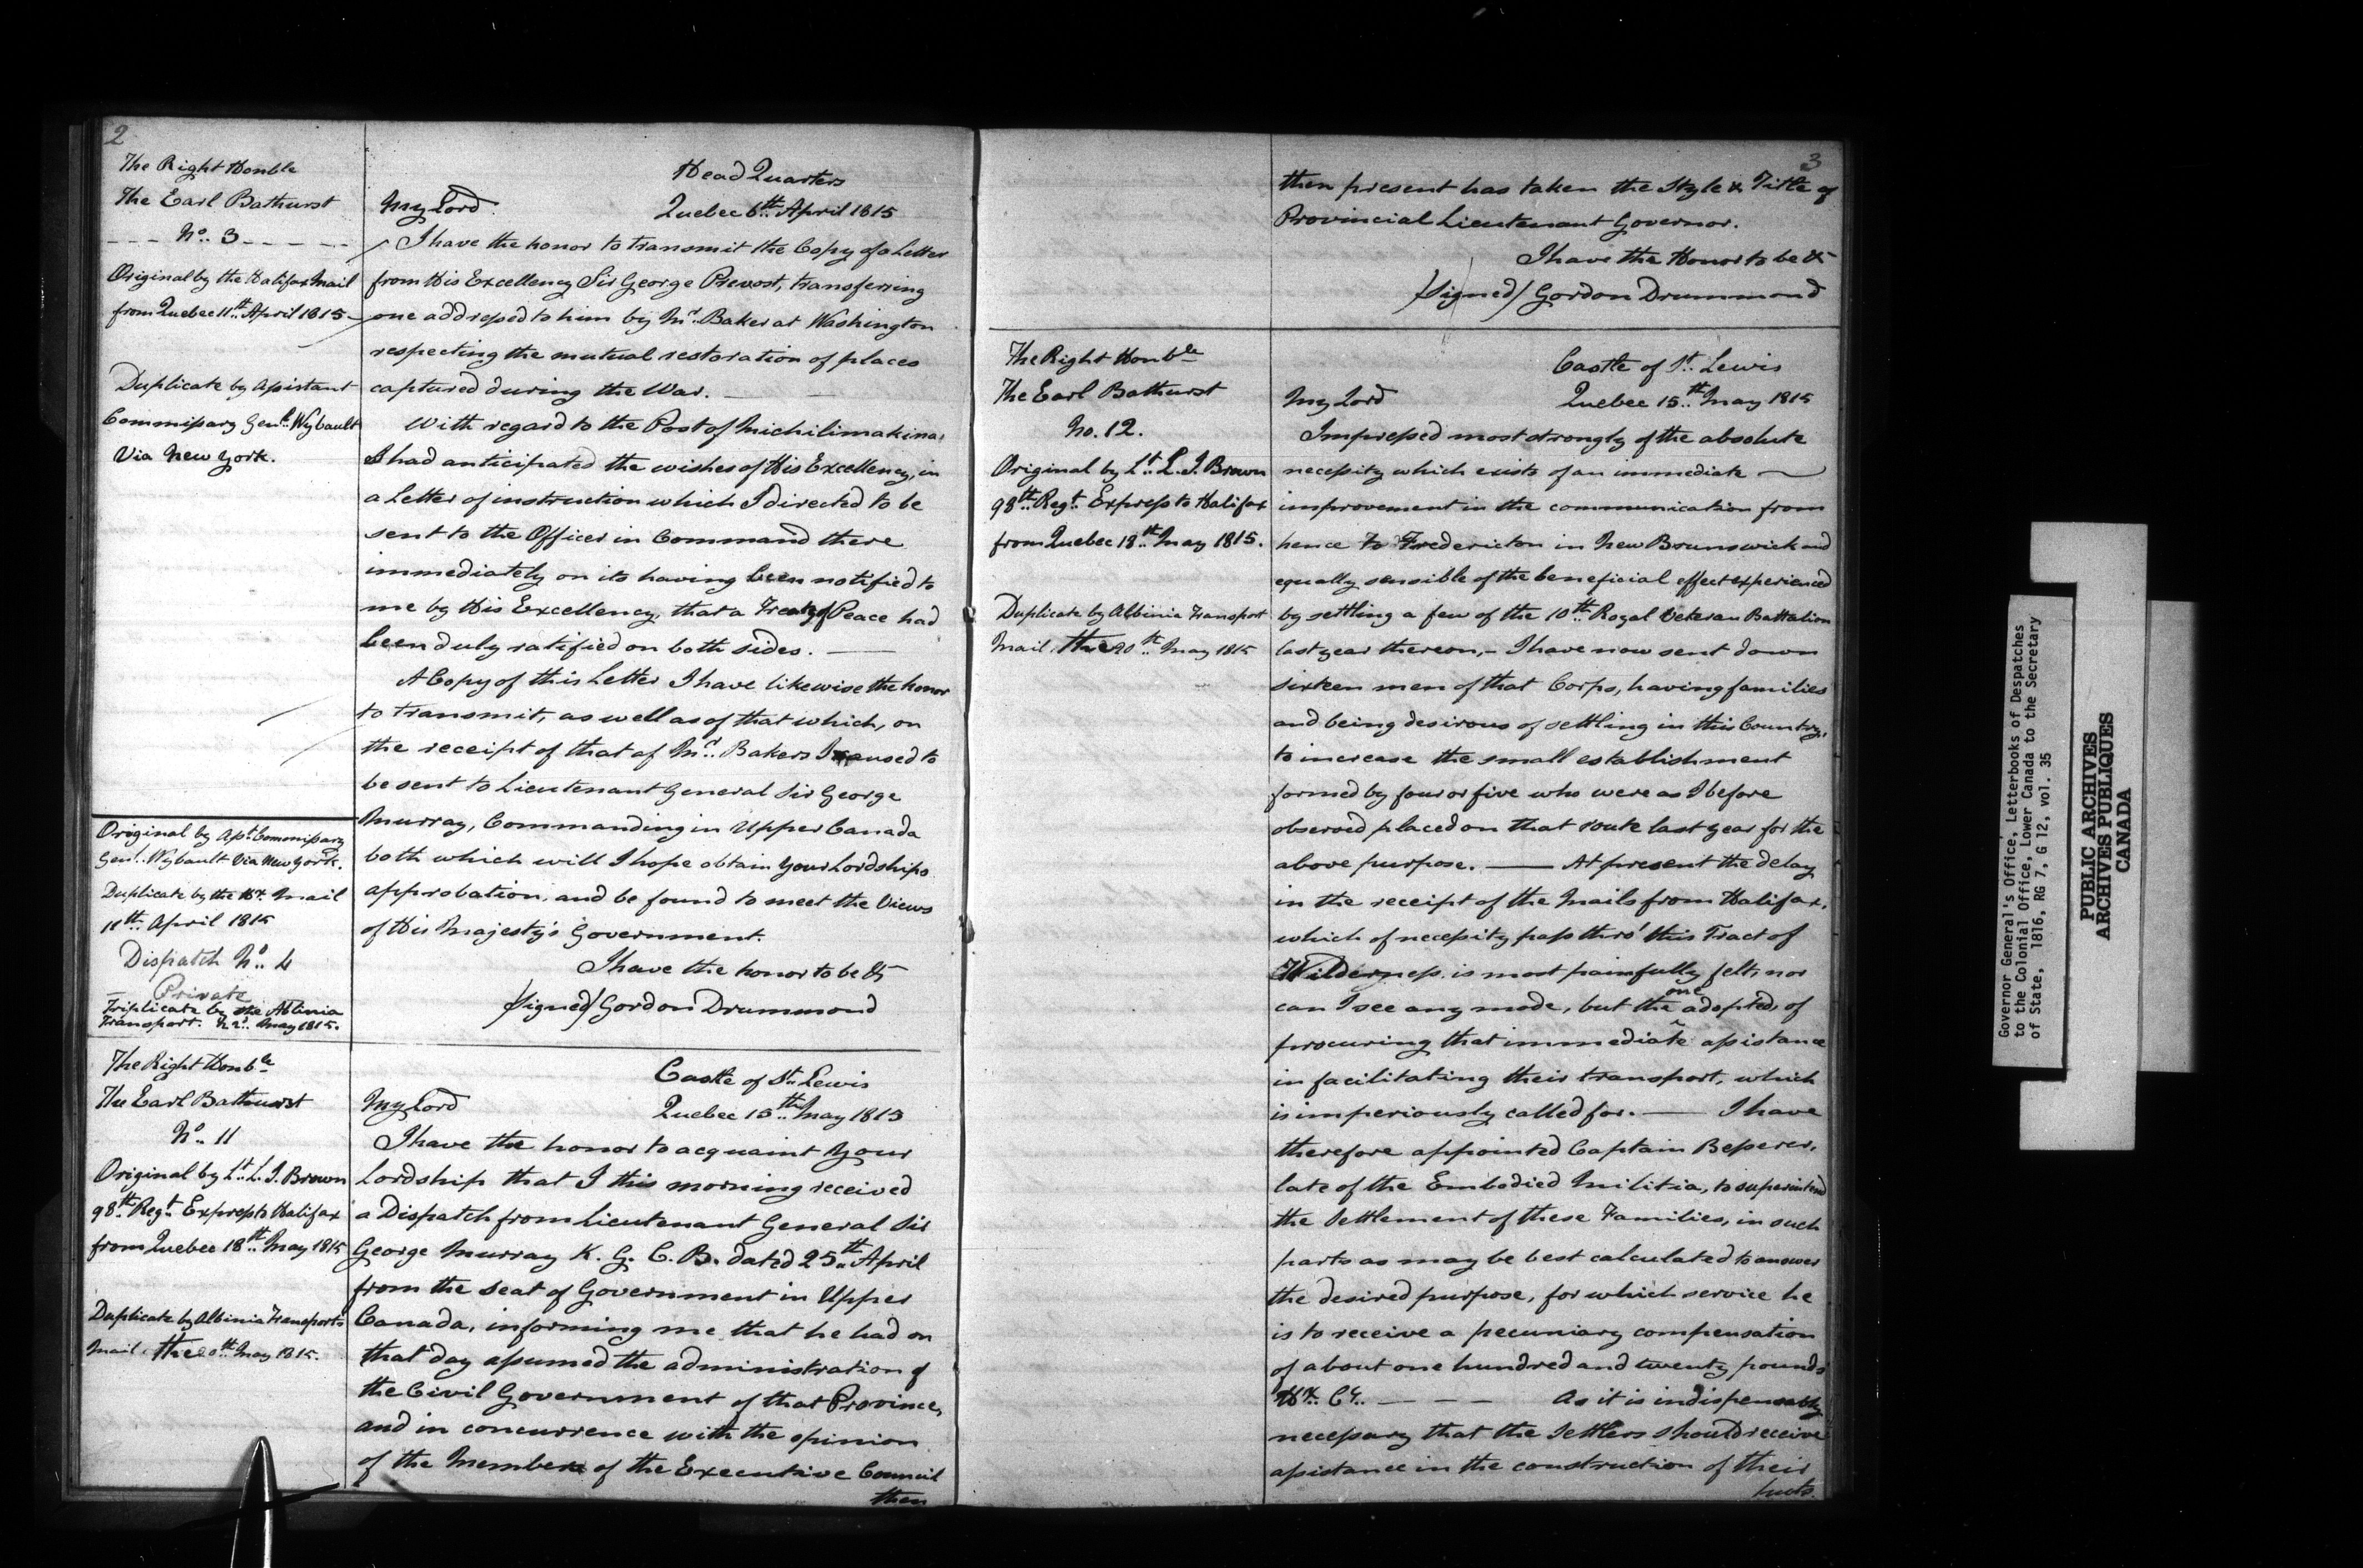 2
The Right Honble
The Earl Bathurst
No. 3
Original by the Halifax Mail
from Quebec 11th April 1815
Duplicate by Assistant
Commissary Genl. Wybault
Via New York.
Head Quarters
My Lord. Quebec 6th April 1815
I have the honor to transmit the Copy of a Letter
from His Excellency Sir George Prevost, transferring
one addressed to him by Mr. Baker at Washington
respecting the mutual restoration of places
captured during the War.
With regard to the Post of Michilimakina,
I had anticipated the wishes of His Excellency, in
a Letter of instruction which I directed to be
sent to the Officer in Command there
immediately on its having been notified to
me by His Excellency, that a Treaty of Peace had
been duly ratified on both sides.
A Copy of this Letter I have likewise the honor
to transmit, as well as of that which, on
the receipt of that of Mr. Bakers I caused to
be sent to Lieutenant General Sir George
Murray, Commanding in Upper Canada
both which will I hope obtain Your Lordships
approbation, and be found to meet the Views
of His Majesty's Government.
I have the honor to be &c
/Signed/ Gordon Drummond
Original by Asst. Commissary
Genl. Wybault Via New York.
Duplicate by the Hx. Mail
11th April 1815
Dispatch No. 4
Private
Triplicate by the Albinia
Transport. 22d. May 1815.
The Right Honble
The Earl Bathurst
No. 11
Original by Lt. L. J. Brown
98th Regt. Express to Halifax
from Quebec 18th May 1815
Duplicate by Albinia Transports
Mail, the 20th May 1815.
Castle of St. Lewis
My Lord Quebec 15th May 1815
I have the honor to acquaint Your
Lordship that I this morning received
a Dispatch from Lieutenant General Sir
George Murray K. G. C. B. dated 25th April
from the seat of Government in Upper
Canada, informing me that he had on
that day assumed the administration of
the Civil Government of that Province,
and in concurrence with the opinion
of the Members of the Executive Council
then
3
then present has taken the Style & Title of
Provincial Lieutenant Governor.
I have the Honor to be &c
/Signed/ Gordon Drummond
The Right Honble
The Earl Bathurst
No. 12.
Original by Lt. L. J. Brown
98th Regt. Express to Halifax
from Quebec 18th May 1815.
Duplicate by Albinia Transport
Mail, the 20th May 1815
Castle of St. Lewis
My Lord Quebec 15th May 1815
Impressed most strongly of the absolute
necessity which exists of an immediate
improvement in the communication from
hence to Fredericton in New Brunswick and
equally sensible of the beneficial effect experienced
by settling a few of the 10th Royal Veteran Battalion
last year thereon,- I have now sent down
sixteen men of that Corps, having families
and being desirous of settling in this Country,
to increase the small establishment
formed by four or five who were as I before
observed placed on that route last year for the
above purpose. — At present the delay
in the receipt of the Mails from Halifax,
which of necessity pass thro' this Tract of
Wilderness, is most painfully felt, nor
can I see any mode, but the one adopted, of
procuring that immediate assistance
in facilitating their transport, which
is imperiously called for. — I have
therefore appointed Captain Besserer,
late of the Embodied Militia, to superintend
the Settlement of these Families, in such
parts as may be best calculated to answer
the desired purpose, for which service he
is to receive a pecuniary compensation
of about one hundred and twenty pounds
Hx. Cy. — — — As it is indispensably
necessary that the Settlers should receive
assistance in the construction of their
huts.
Governor General's Office, Letterbooks of Despatches
to the Colonial Office, Lower Canada to the Secretary
of State, 1816, RG 7, G 12, vol. 35
PUBLIC ARCHIVES
ARCHIVES PUBLIQUES
CANADA